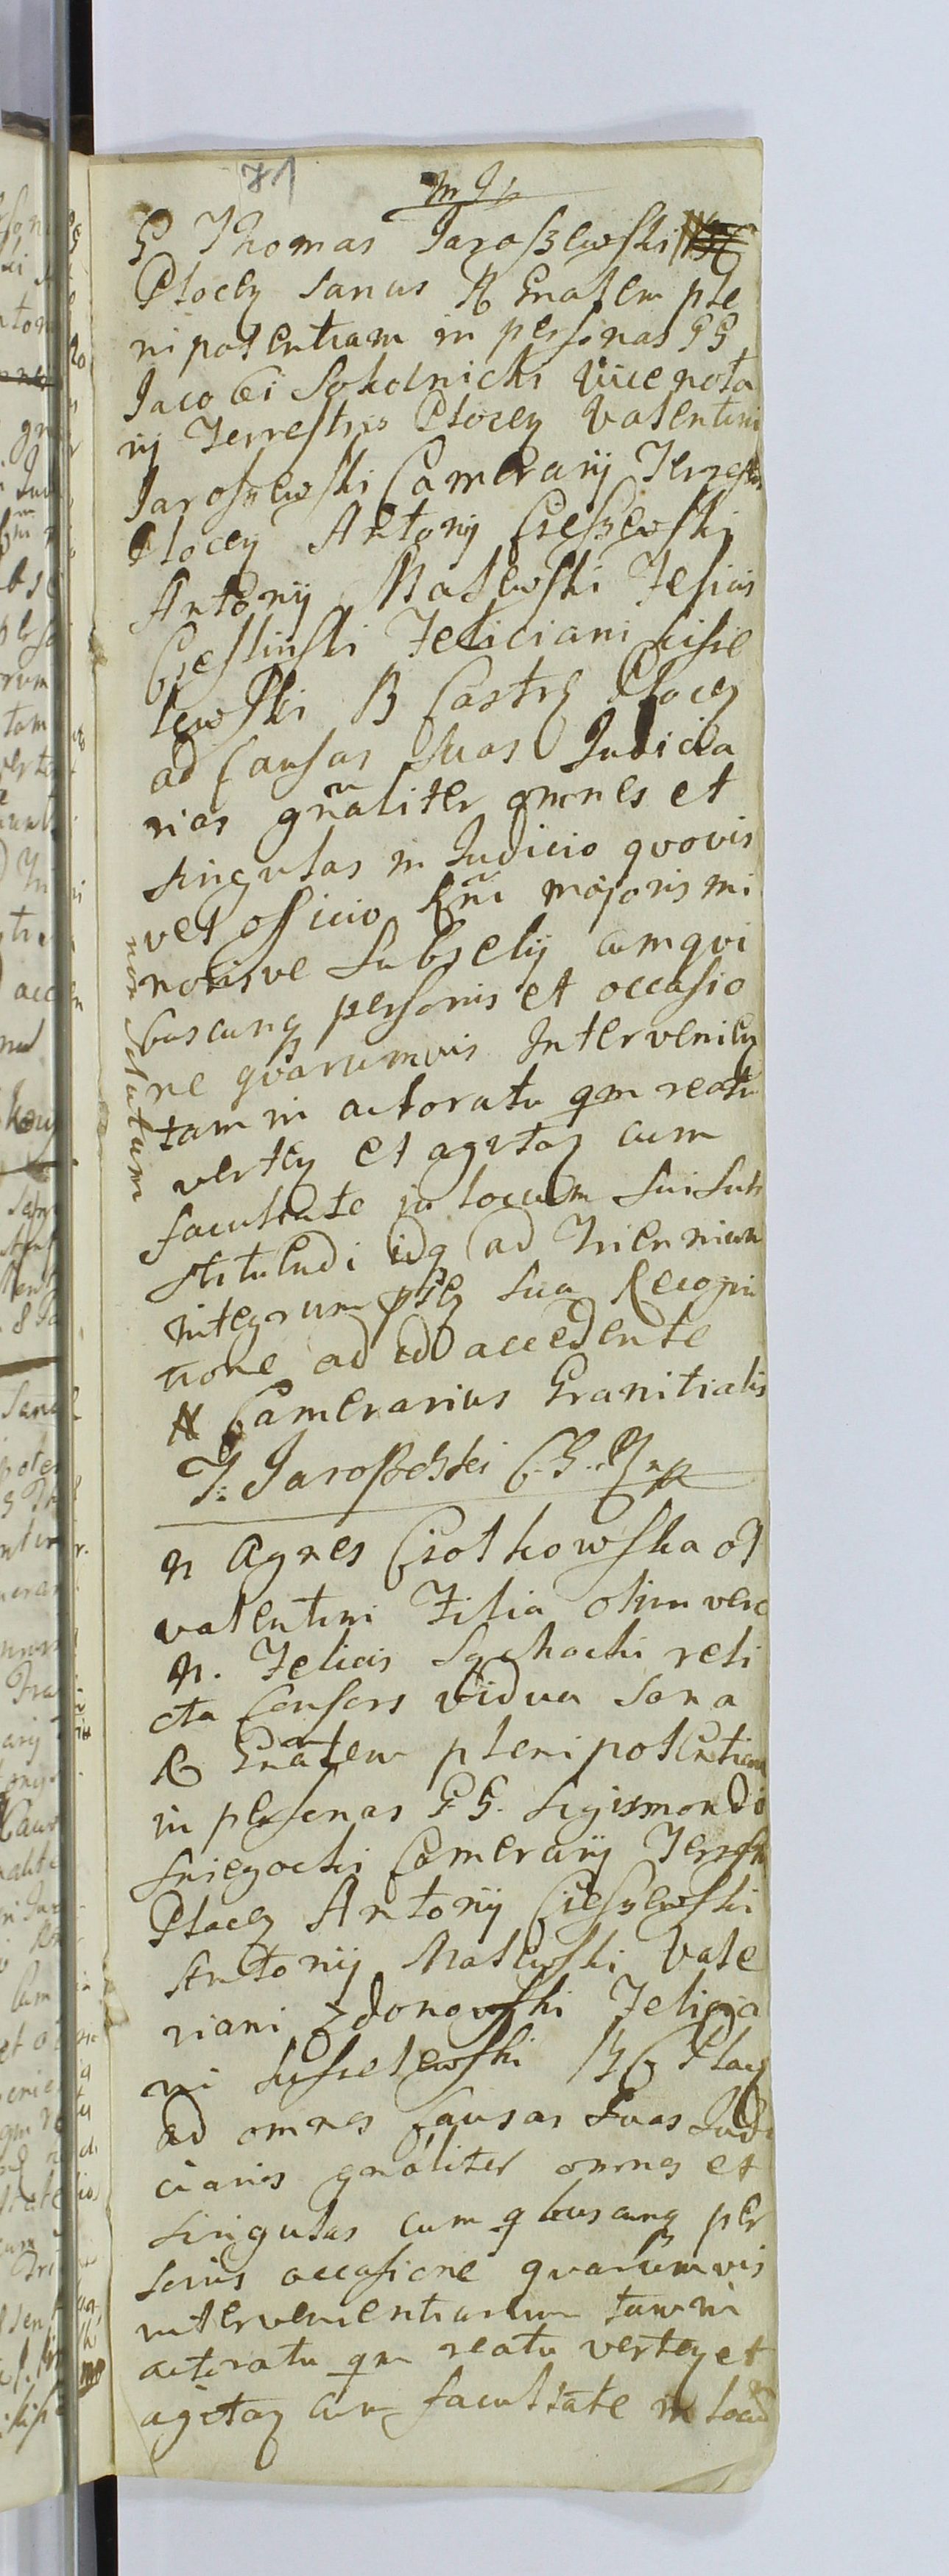 71
G Thomas Jaroszewski
Plocen sanus R Gnalem ple
nipotentiam in personas GG
Jacobi Sokolnicki vice nota
rij Terrestris Plocen Valentini
Jaroszewski Camerarij Terrestris
Plocen Antonij Cieszewski
Antonij Malewski Felicis
Czeslinski Feliciani Kisie
lewski B Castrz Plocen
ad Causas suas Judicia
rias gnãliter omnes et
singulas in Judicio quovis
vel officio Rñi majoris mi
norisve Subselij cumqui
buscunq personis et occasio
ne quarumvis Intervenien
tam in actoratu qm reatu
verten et agitan cum
facultate in locum sui sub
stituendi idq ad Triennium
integrum pñten sua Recogni
tione ad id accedente
non datum
N Camerarius Granitialis
T: Jaroszeski C. G. P mp
N Agnes Ciotkowska ol
Valentini Filia olim vero
N. Felicis Sochacki reli
cta Consors vidua sana
R Gnãlem plenipotentiam
in personas GG. Sigismondi
Sniegocki Camerarij Terrestr
Plocen Antonij Cieszewski
Antonij Malewski Vale
riani Zdonowski Felicia
ni
ad omnes Causas suas Judi
ciarias gnaliter omnes et
singulas cum qbuscunq per
sonis occasione quarumvis
intervenientiarum tam in
actoratu qm reatu verten et
agitan cum facultate in locũ